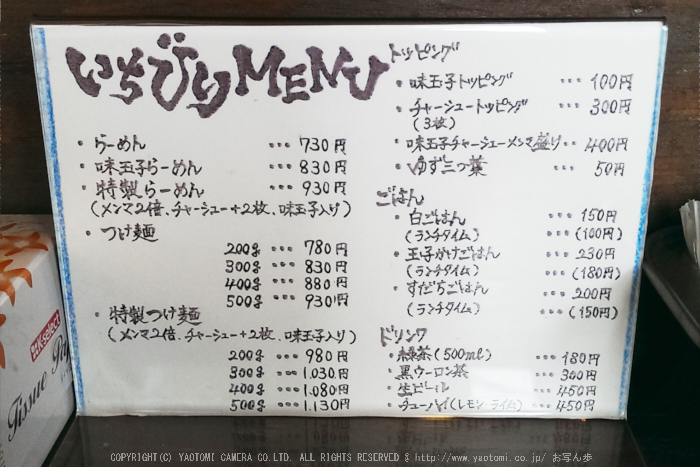 いちびりMENU
・らーめん ・・・ 730円
・味玉子らーめん ・・・ 830円
・特製らーめん ・・・ 930円
(メンマ2倍、チャーシュー+2枚、味玉子入り)
・つけ麺
200g ・・・ 780円
300g ・・・ 830円
400g ・・・ 880円
500g ・・・ 930円
・特製つけ麺
(メンマ2倍、チャーシュー+2枚、味玉子入り)
200g ・・・ 980円
300g ・・・ 1,030円
400g ・・・ 1,080円
500g ・・・ 1,130円
トッピング
・味玉子トッピング ・・・ 100円
・チャーシュートッピング ・・・ 300円
(3枚)
・味玉子チャーシューメンマ盛り ・・・ 400円
・ゆず三つ葉 ・・・ 50円
ごはん
・白ごはん ・・・ 150円
(ランチタイム) ・・・ (100円)
・玉子かけごはん ・・・ 230円
(ランチタイム) ・・・ (180円)
・すだちごはん ・・・ 200円
(ランチタイム) ・・・ (150円)
ドリンク
・緑茶(500ml) ・・・ 180円
・黒ウーロン茶 ・・・ 300円
・生ビール ・・・ 450円
・チューハイ(レモン・ライム) ・・・ 450円
K select
Tissue
COPYRIGHT(C) YAOTOMI CAMERA CO.LTD. ALL RIGHTS RESERVED § http://www.yaotomi.co.jp/ お写ん歩